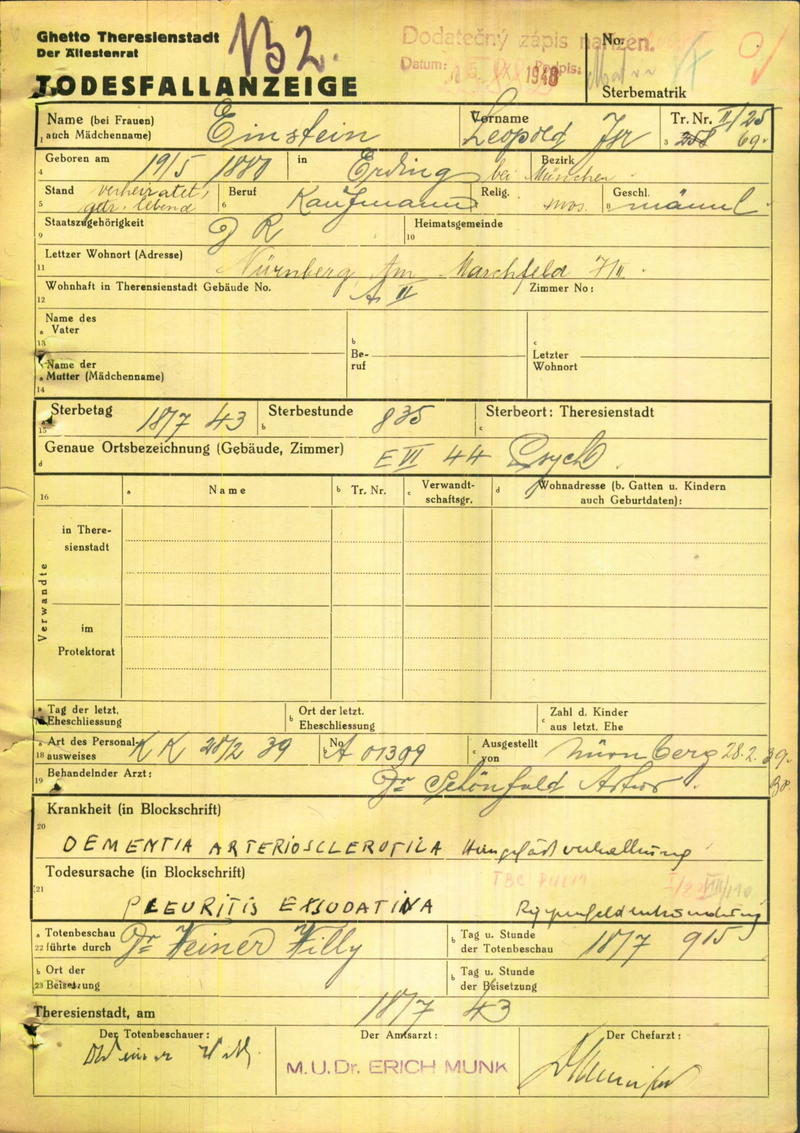 Ghetto Theresienstadt
Der Ältestenrat
TODESFALLANZEIGE
Dodatečný zápis nařízen.
Datum: 1948 Podpis:
No:
Sterbematrik
Name (bei Frauen) Einstein Vorname Leopold Isr Tr. Nr. II/25
1 auch Mädchenname) 3 69.
Geboren am 19/5 1880 in Erding bei München Bezirk
4
Stand verheiratet, Beruf Kaufmann Relig. mos. Geschl. männl
5 getr. lebend 6 8
Staatszugehörigkeit D R Heimatsgemeinde
9 10
Letzter Wohnort (Adresse) Nürnberg, Am Marchfeld
11
Wohnhaft in Theresienstadt Gebäude No. Zimmer No:
12
Name des
a Vater
13
b Be-
ruf
c Letzter
Wohnort
Name der
a Mutter (Mädchenname)
14
a Sterbetag 18/7 43 b Sterbestunde 835 c Sterbeort: Theresienstadt
15
Genaue Ortsbezeichnung (Gebäude, Zimmer) E VII 44 Psych.
d
16 a Name b Tr. Nr. c Verwandt-
schaftsgr. d Wohnadresse (b. Gatten u. Kindern
auch Geburtdaten):
Verwandte
in There-
sienstadt
im
Protektorat
a Tag der letzt.
Eheschliessung
b Ort der letzt.
Eheschliessung
c Zahl d. Kinder
aus letzt. Ehe
a Art des Personal- KK 28/2 39 b No A 01309 c Ausgestellt Nürnberg 28.2.39.
18 ausweises von
Behandelnder Arzt: Dr Schönfeld Artur
19
Krankheit (in Blockschrift)
20
DEMENTIA ARTERIOSCLEROTICA
Todesursache (in Blockschrift)
21
PLEURITIS EXSUDATIVA Rippenfellentzündung
a Totenbeschau Dr Weiner Willy b Tag u. Stunde 18/7 915
22 führte durch der Totenbeschau
b Ort der b Tag u. Stunde
23 Beisetzung der Beisetzung
Theresienstadt, am 18/7 43
Der Totenbeschauer: Der Amtsarzt: Der Chefarzt:
M.U.Dr. ERICH MUNK